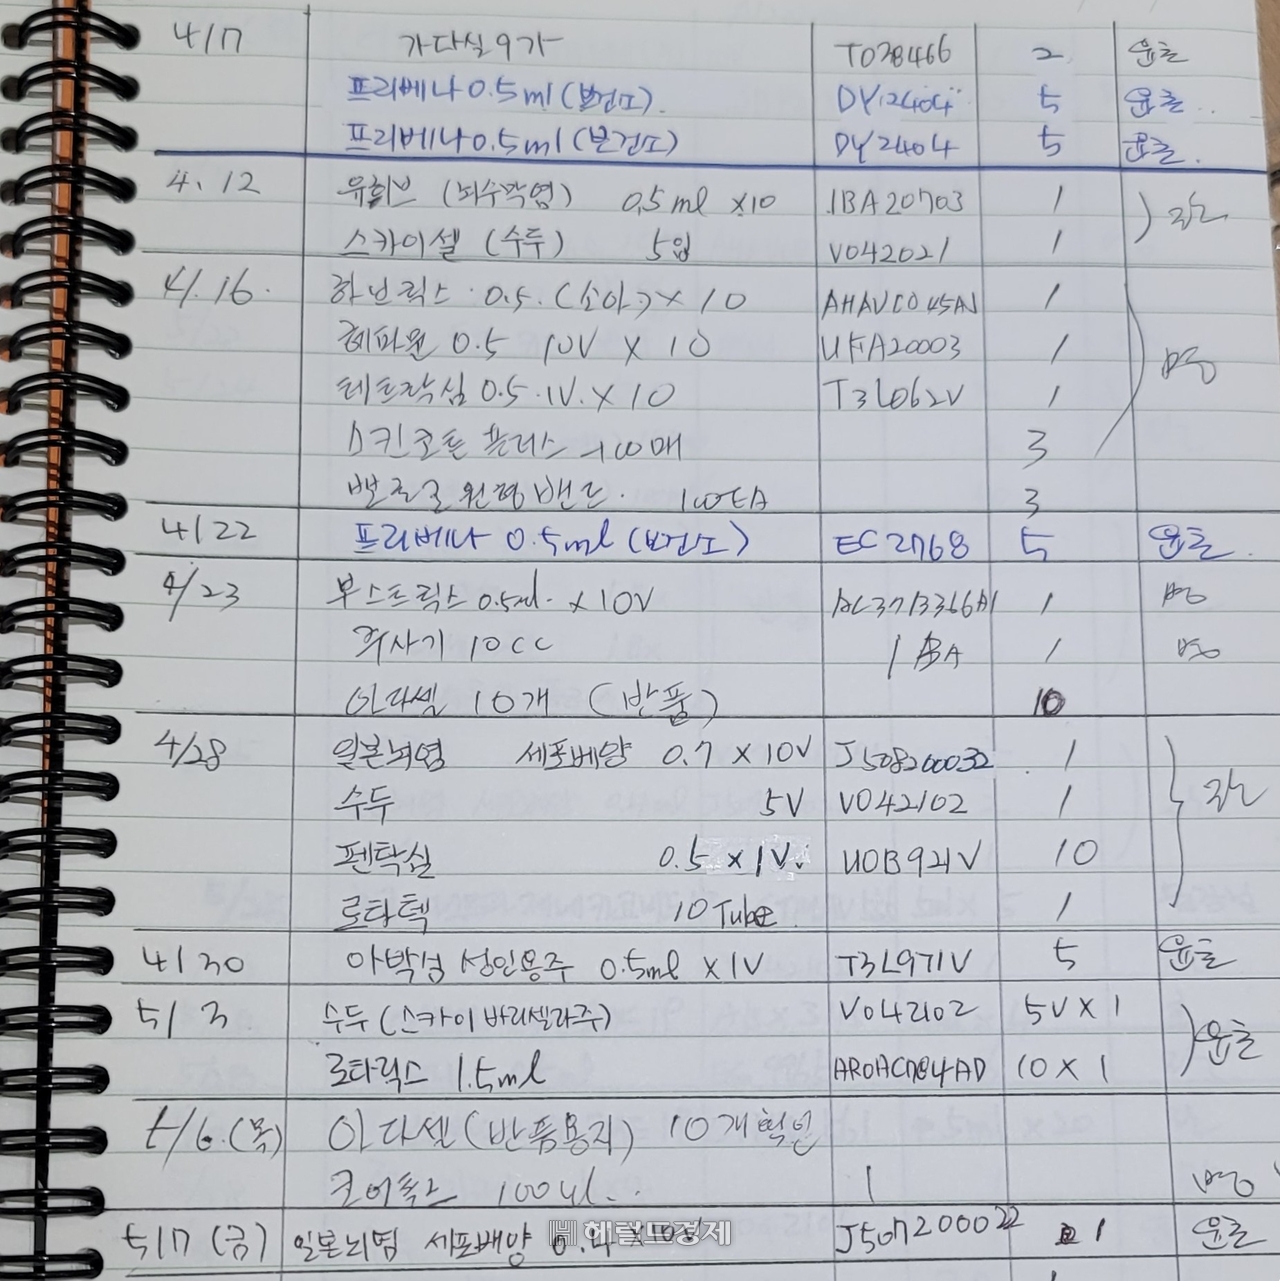 4/7 가다실9가 T038466 2 윤흔
프리베나0.5ml(보건소) DY2404 5 윤흔
프리베나0.5ml(보건소) DY2404 5 윤흔
4.12 유히브 (뇌수막염) 0.5ml x10 1BA20703 1
스카이셀 (수두) 5입 V042021 1
4/.16. 하브릭스 0.5.(소아) x 10 AHAVC045AJ 1
헤파원 0.5 10V x 10 UFA20003 1
테트락심 0.5.1V. x 10 T3L062V 1
스킨코튼 플러스 3
원형밴드. 100EA 3
4/22 프리베나 0.5ml(보건소) EC2768 5 윤흔
4/23 부스트릭스 0.5ml. x 10V 1
주사기 10CC 1
아다셀 10개 (반품) 10
4/28 일본뇌염 세포배양 0.7 x 10V J508200032 1
수두 5V V042102 1
펜탁심 0.5 x 1V. U0B921V 10
로타텍 10Tube 1
4/30 아박심 성인용주 0.5ml x 1V T3L971V 5 윤흔
5/3 수두(스카이바리셀라주) V042102 5V x 1
로타릭스 1.5ml AROHC 10 x 1 윤흔
5/6.(목) 아다셀(반품용지) 10개확인
100ul.. 1
5/7 (금) 일본뇌염 세포배양 J507200022 1 윤흔
헤럴드경제